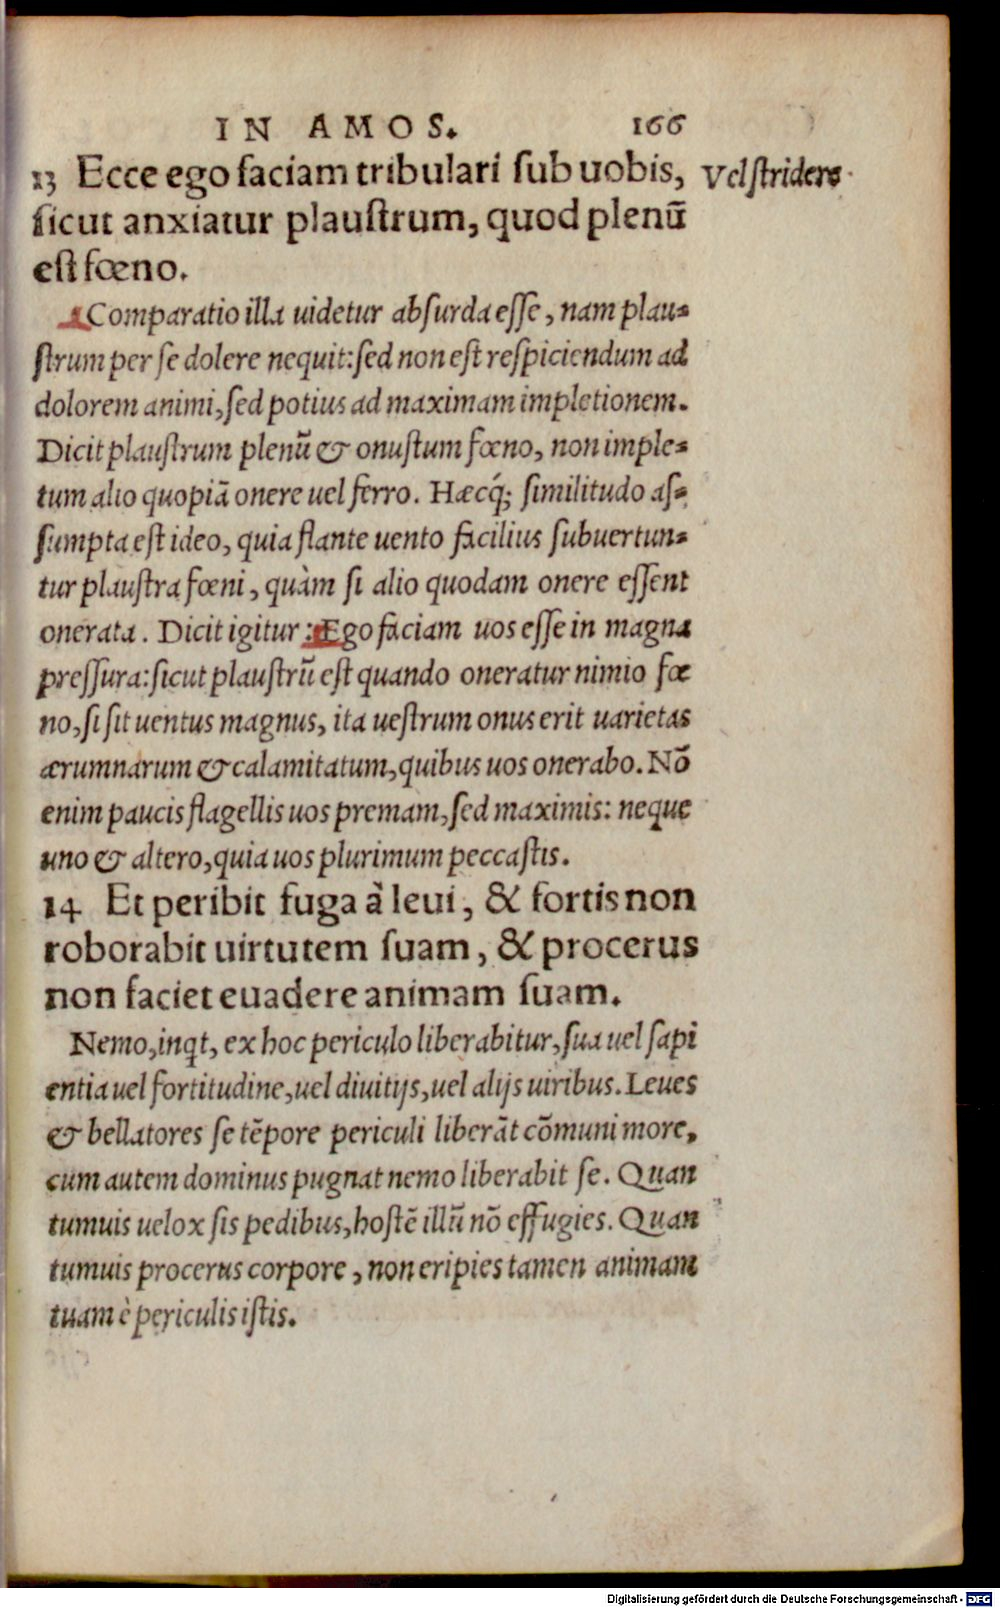 IN AMOS. 166
13 Ecce ego faciam tribulari ſub uobis, Vel ſtridere
ſicut anxiatur plauſtrum, quod plenū
eſt fœno.
Comparatio illa uidetur abſurda eſſe, nam plau-
ſtrum per ſe dolere nequit: ſed non eſt reſpiciendum ad
dolorem animi, ſed potius ad maximam impletionem.
Dicit plauſtrum plenū & onuſtum fœno, non imple-
tum alio quopiā onere uel ferro. Hæcq́; ſimilitudo aſ-
ſumpta eſt ideo, quia flante uento facilius ſubuertun-
tur plauſtra fœni, quàm ſi alio quodam onere eſſent
onerata. Dicit igitur: Ego faciam uos eſſe in magna
preſſura: ſicut plauſtrū eſt quando oneratur nimio fœ
no, ſi ſit uentus magnus, ita ueſtrum onus erit uarietas
ærumnarum & calamitatum, quibus uos onerabo. Nō
enim paucis flagellis uos premam, ſed maximis: neque
uno & altero, quia uos plurimum peccaſtis.
14 Et peribit fuga à leui, & fortis non
roborabit uirtutem ſuam, & procerus
non faciet euadere animam ſuam.
Nemo, inqt, ex hoc periculo liberabitur, ſua uel ſapi
entia uel fortitudine, uel diuitijs, uel alijs uiribus. Leues
& bellatores ſe tēpore periculi liberāt cōmuni more,
cum autem dominus pugnat nemo liberabit ſe. Quan
tumuis uelox ſis pedibus, hoſtē illū nō effugies. Quan
tumuis procerus corpore, non eripies tamen animam
tuam è periculis iſtis.
Digitalisierung gefördert durch die Deutsche Forschungsgemeinschaft - DFG